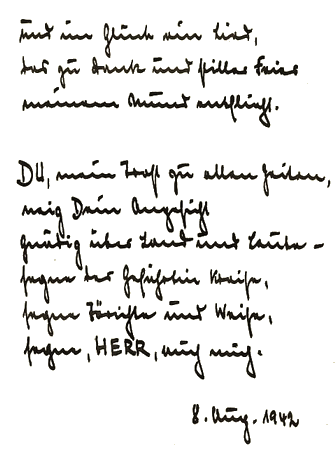 und im Glück ein Lied,
das zu Dank und stiller Feier
meinem Mund entflieht.
DU, mein Trost zu allen Zeiten,
neig Dein Angesicht
gnädig über Land und Leute –
segne der Gefährtin Kreise,
segne Törichte und Weise,
segne, HERR, auch mich.
8. Aug. 1942